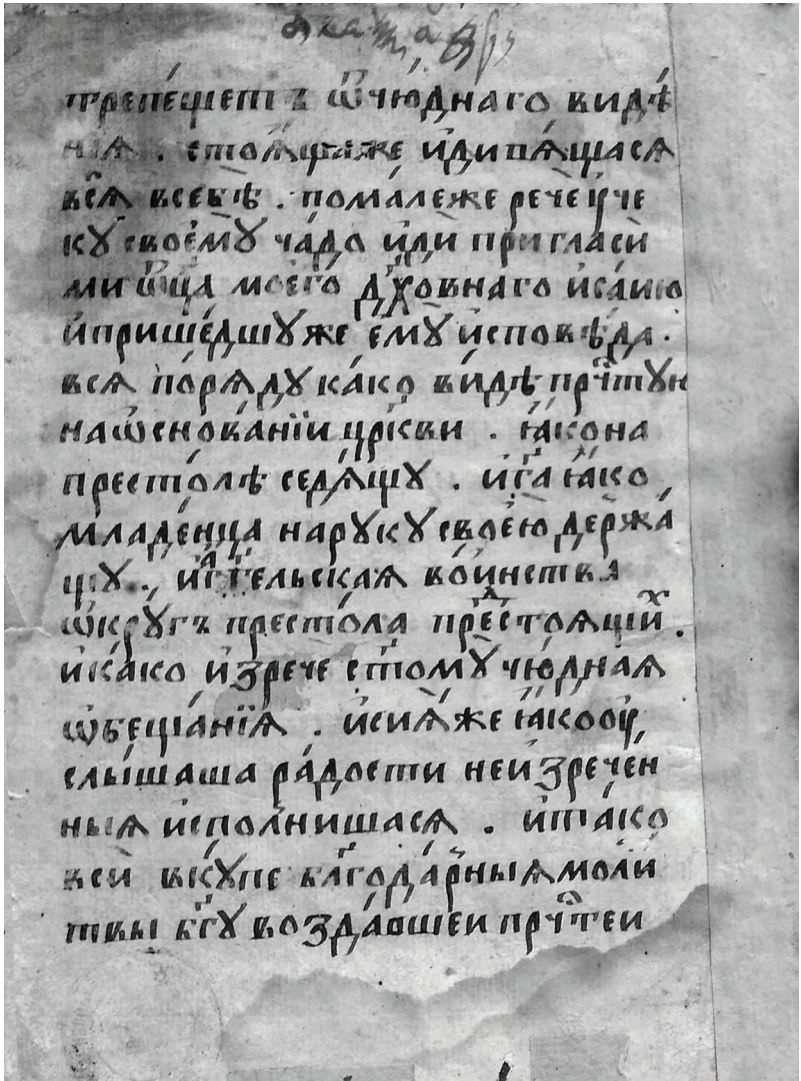 трепе́щетъ ѿчю́днаго видѣ́
нїѧ . стоѧ́щаже и҆дивѧ́щасѧ
всѝѧ всебѣ̀ . пома́леже рече̑ ᲂу҆че
кꙋ своемꙋ̀ ча́до и҆дѝ пригласѝ
ми ѿц҃а̀ моего̀ дх҃о́внаго и҆са́ию
и҆прише́дшꙋже е҆мꙋ̀ и҆сповѣ́да .
всѧ по́рѧдꙋ ка́ко ви́дѣ прч҇тꙋю
наѡ҆снова́нїи цр҃кви . ꙗ҆́кона
престо́лѣ седѧ́щꙋ . и҆гд҇а ꙗ҆́ко
младе́нца нарꙋкꙋ̀ свое́ю держа́
щꙋ . и҆а҆́гг҃ельскаѧ во́инства
ѡ҆́крꙋгъ престо́ла предстоѧ́щих .
и҆ка́ко и҆зречѐ ст҃омꙋ̀ чю́днаѧ
ѡ҆беща́нїѧ . и҆сиѧ́же ꙗ҆́коᲂу҆
слы́шаша ра́дости неи҆зрече́н
ныѧ и҆спо́лнишасѧ . и҆та́ко
всѝ вкꙋ́пе бл҃года́рныѧ моли́
твы бг҃ꙋ возда́вшеи прч҇тей